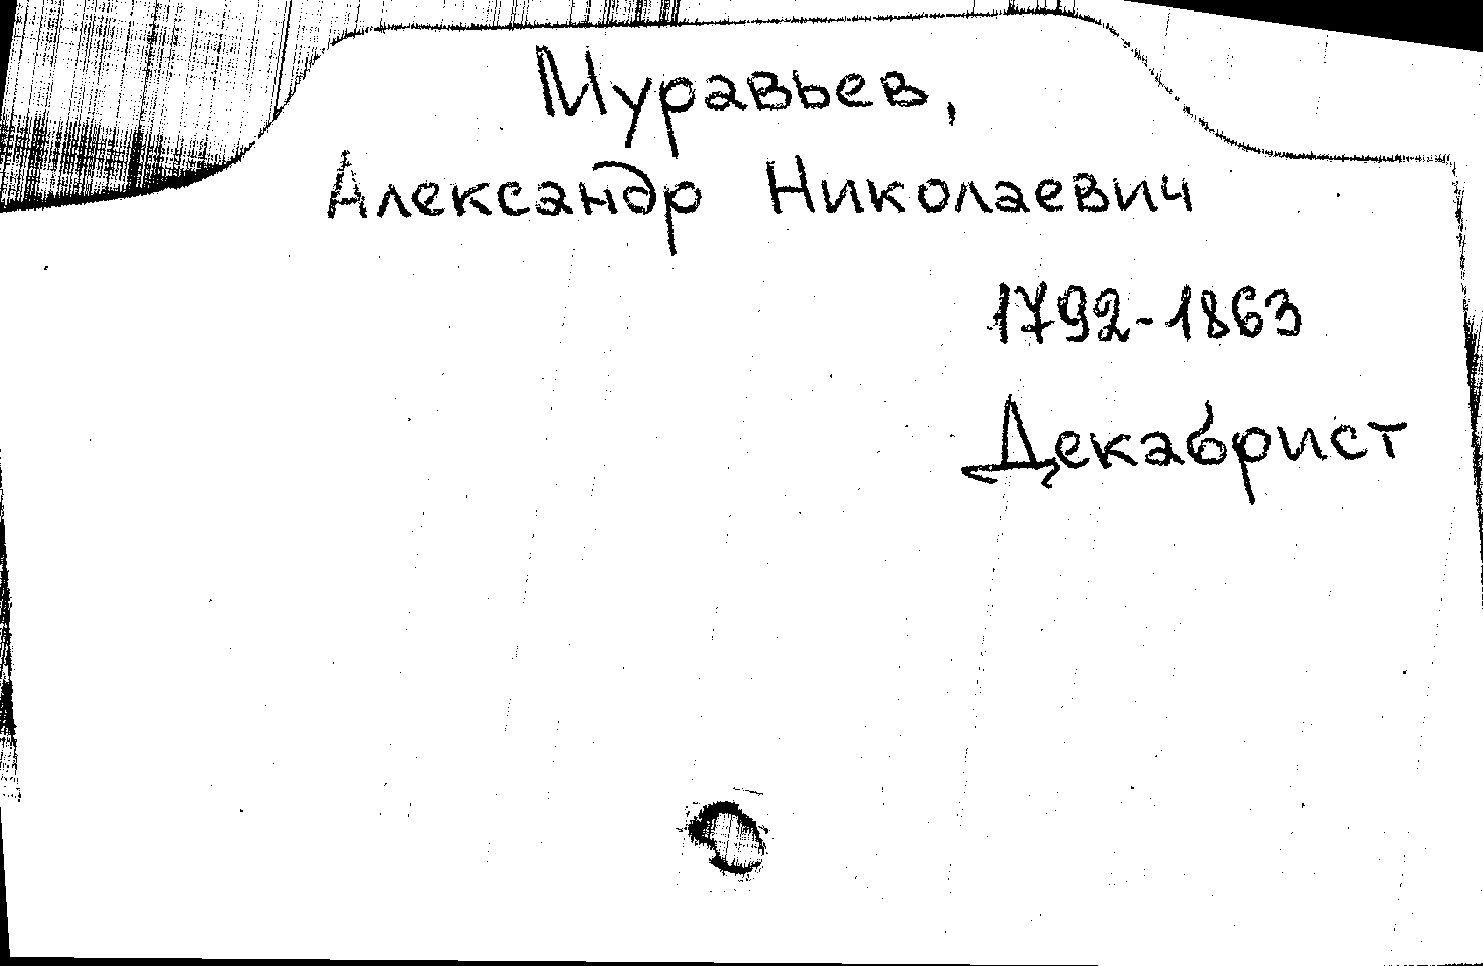 Муравьев,
Александр Николаевич
1792-1863
Декабрист